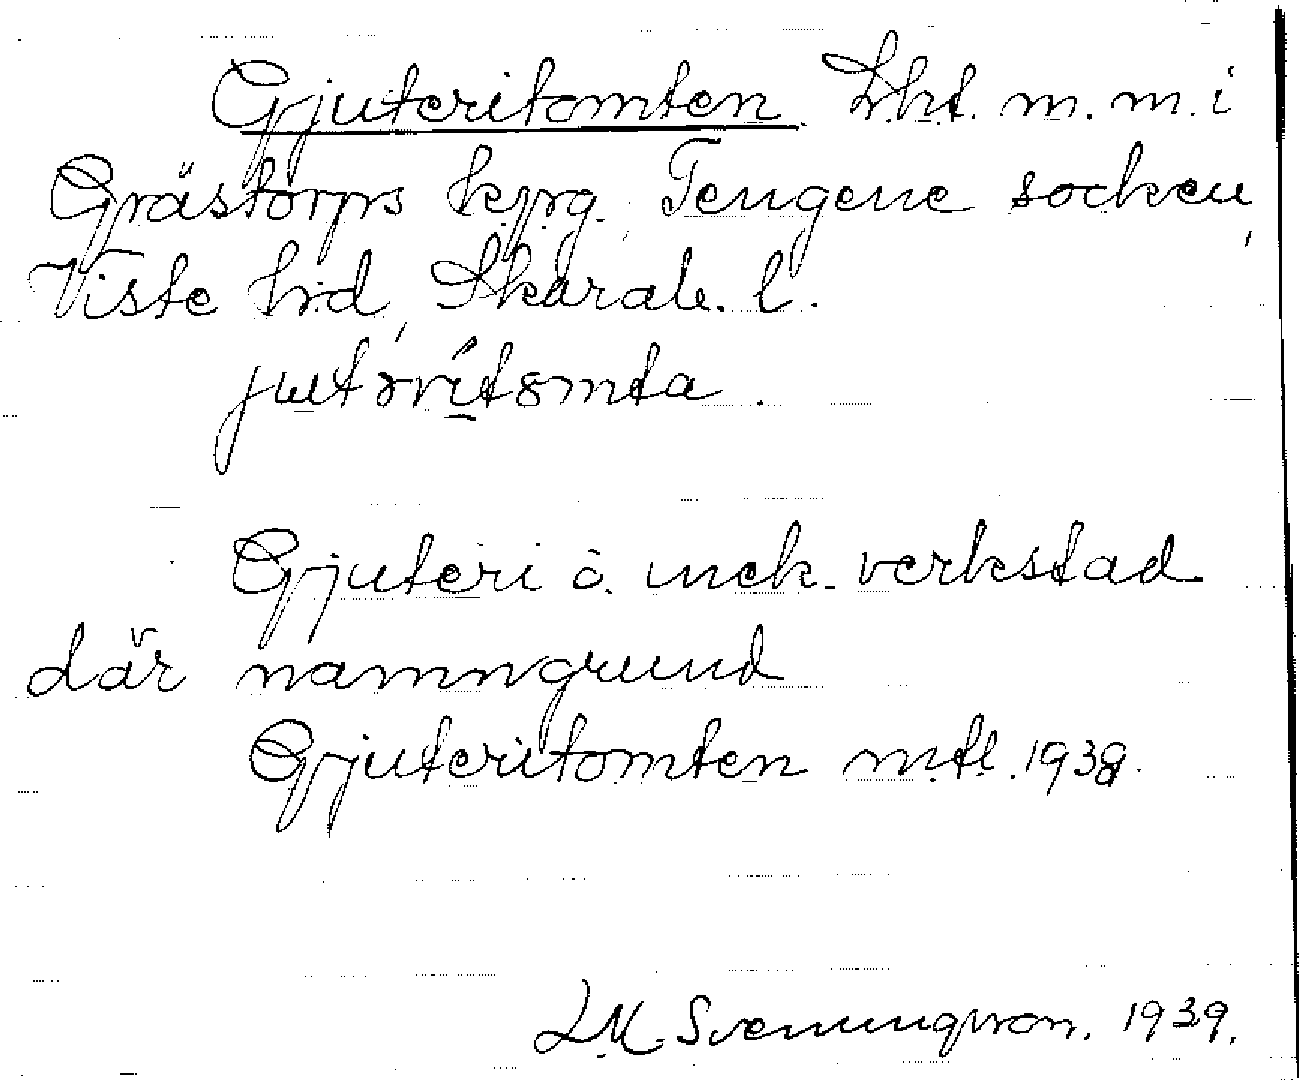 Gjuteritomten. Lht. m. m. i
Grästorps kpg. Tengene socken,
Viste hd, Skarab. l.
jutərítomta.
Gjuteri o. mek. verkstad
där namngrund
Gjuteritomten mtl. 1938.
LM Svenungsson. 1939.